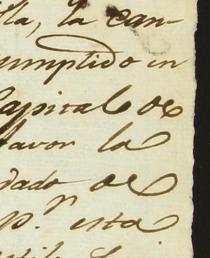 lla, la can-
cumplido en
Capital de
favor la
dado de
p.r esta